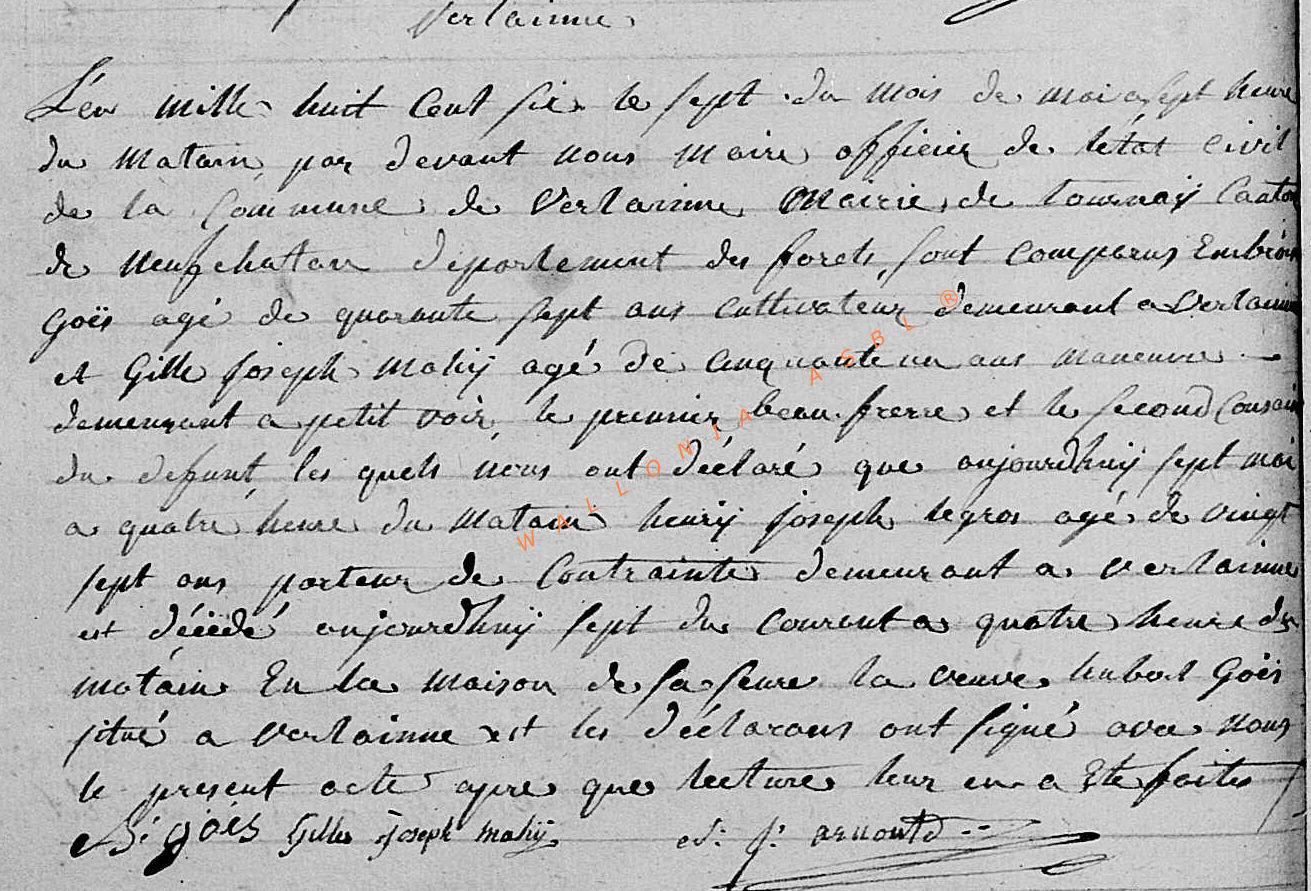 verlainne
L'en mille huit Cent six le sept du mois de mai a sept heure
du matain par devant nous maire officier de létat civil
de la Commune de verlainne Mairie de tournay Canton
de neufchatau département des forets, sont comparus Embrois
Goës agé de quarante sept ans cultivateur demeurant a verlainne
et Gille joseph mahy agé de cinquante un ans maneuvre
demeurant a petit voir, le premier beau frerre et le second Cousain
du defunt, les quels nous ont déclaré que aujourdhuij sept mai
a quatre heure du matain henrij joseph legros agé de vingt
sept ans porteur de Contrainte demeurant a verlainne
est décédé aujourdhuij sept du courent a quatre heure du
matain En la maison de sa seure la veuve hubert Goës
situé a verlainne et les déclarans ont signé avec nous
le present acte apre que lecture leur en a Ete faites
goës Gille joseph mahij j: arnould
WALLONIA ASBL ®